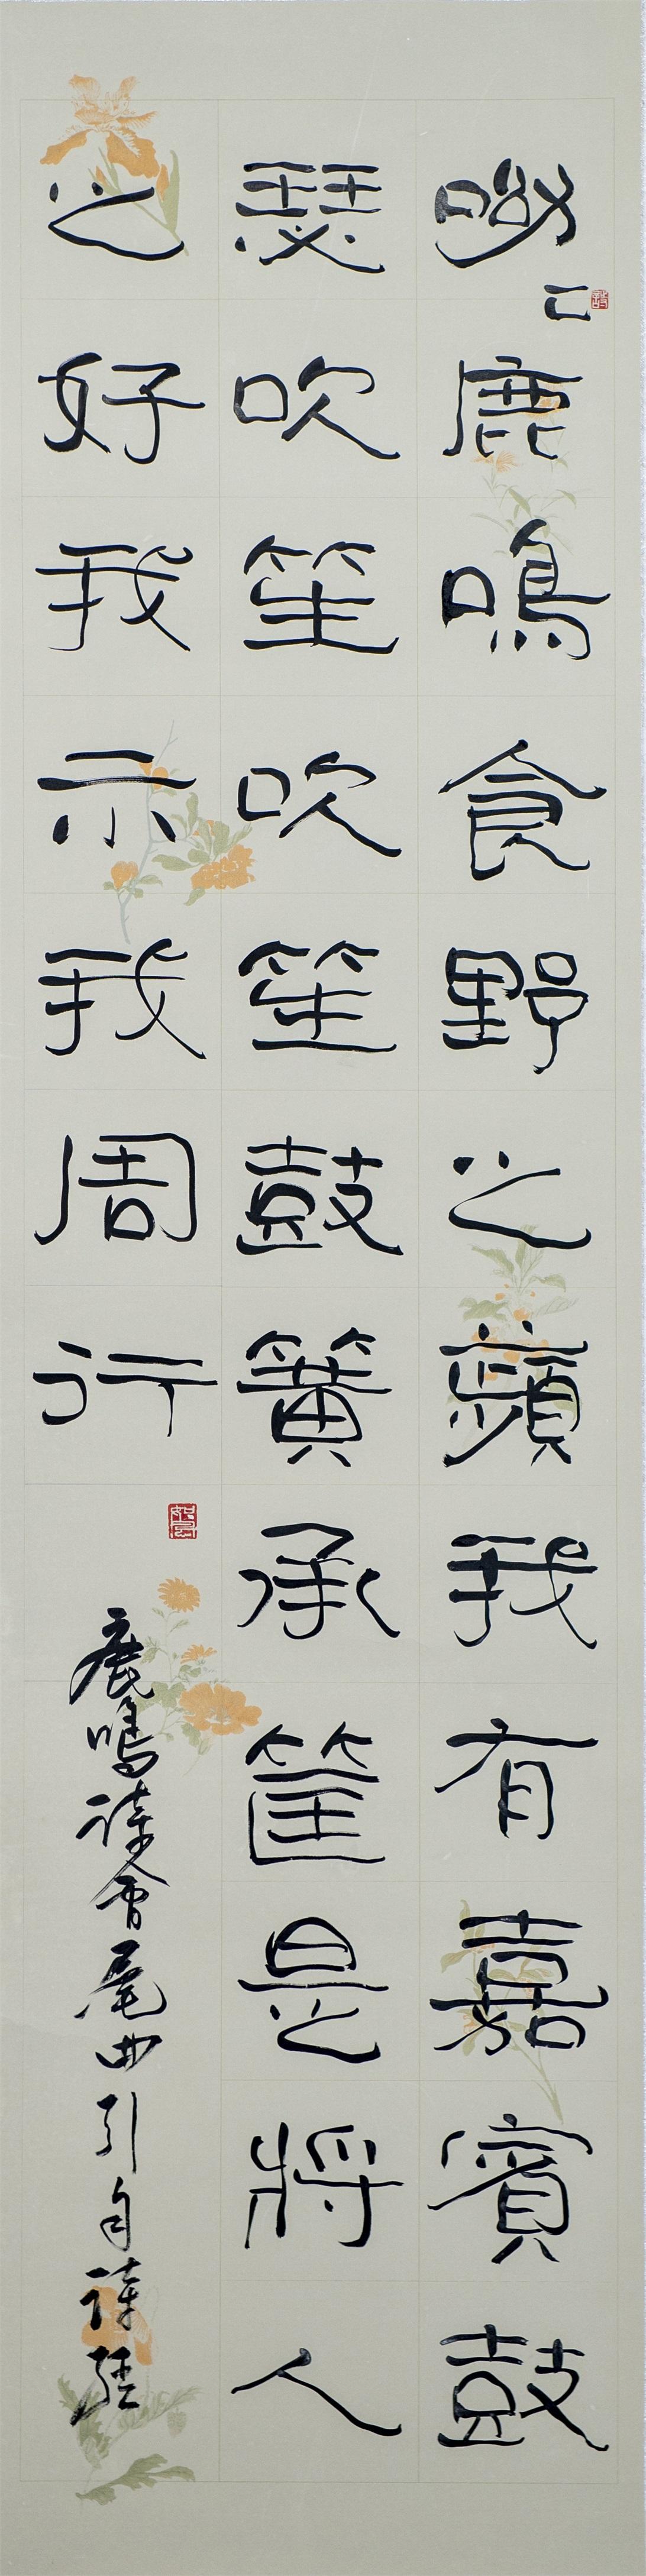 呦〻鹿鳴食野之蘋我有嘉賓鼓
瑟吹笙吹笙鼓簧承筐是將人
之好我示我周行
鹿鳴詩會尾曲引自詩經